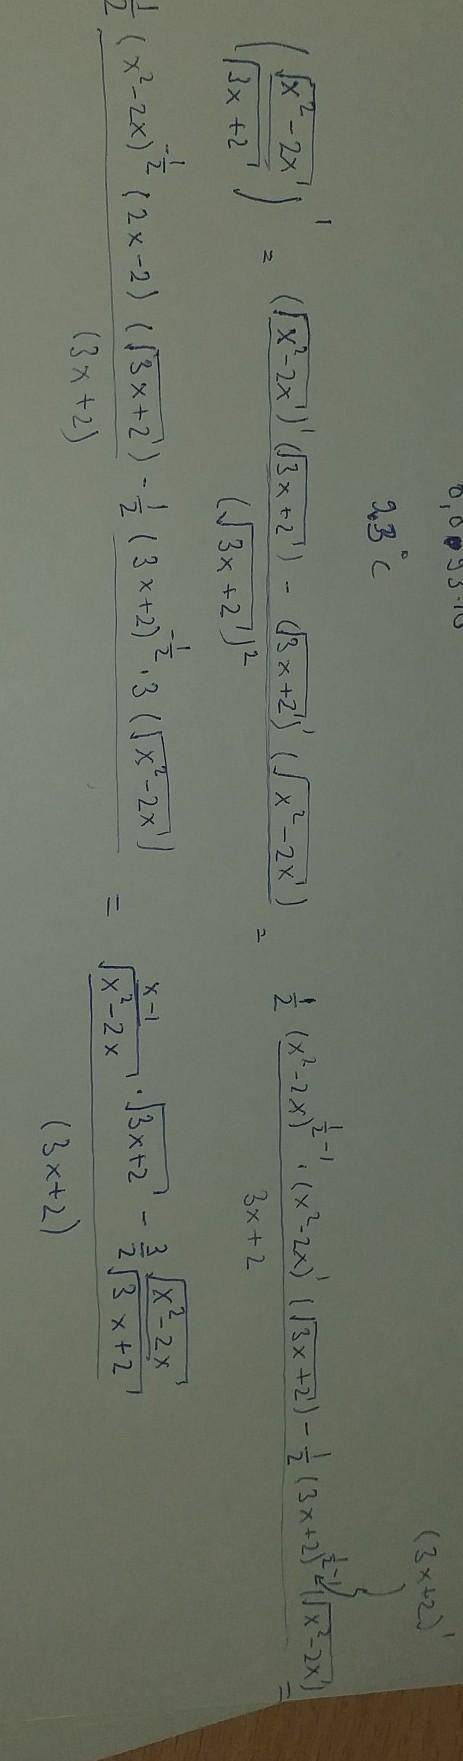 (3x+2)'
23°C
(√(x²-2x) / √(3x+2))' = ((√(x²-2x))' (√(3x+2)) - (√(3x+2))' (√(x²-2x))) / (√(3x+2))² = (1/2 (x²-2x)^(1/2-1) · (x²-2x)' (√(3x+2)) - 1/2 (3x+2)^(1/2-1) (√(x²-2x))) / 3x+2 =
1/2 (x²-2x)^(-1/2) (2x-2) (√(3x+2)) - 1/2 (3x+2)^(-1/2) · 3 (√(x²-2x)) / (3x+2) = ((x-1)/√(x²-2x) · √(3x+2) - 3/2 √(x²-2x)/√(3x+2)) / (3x+2)